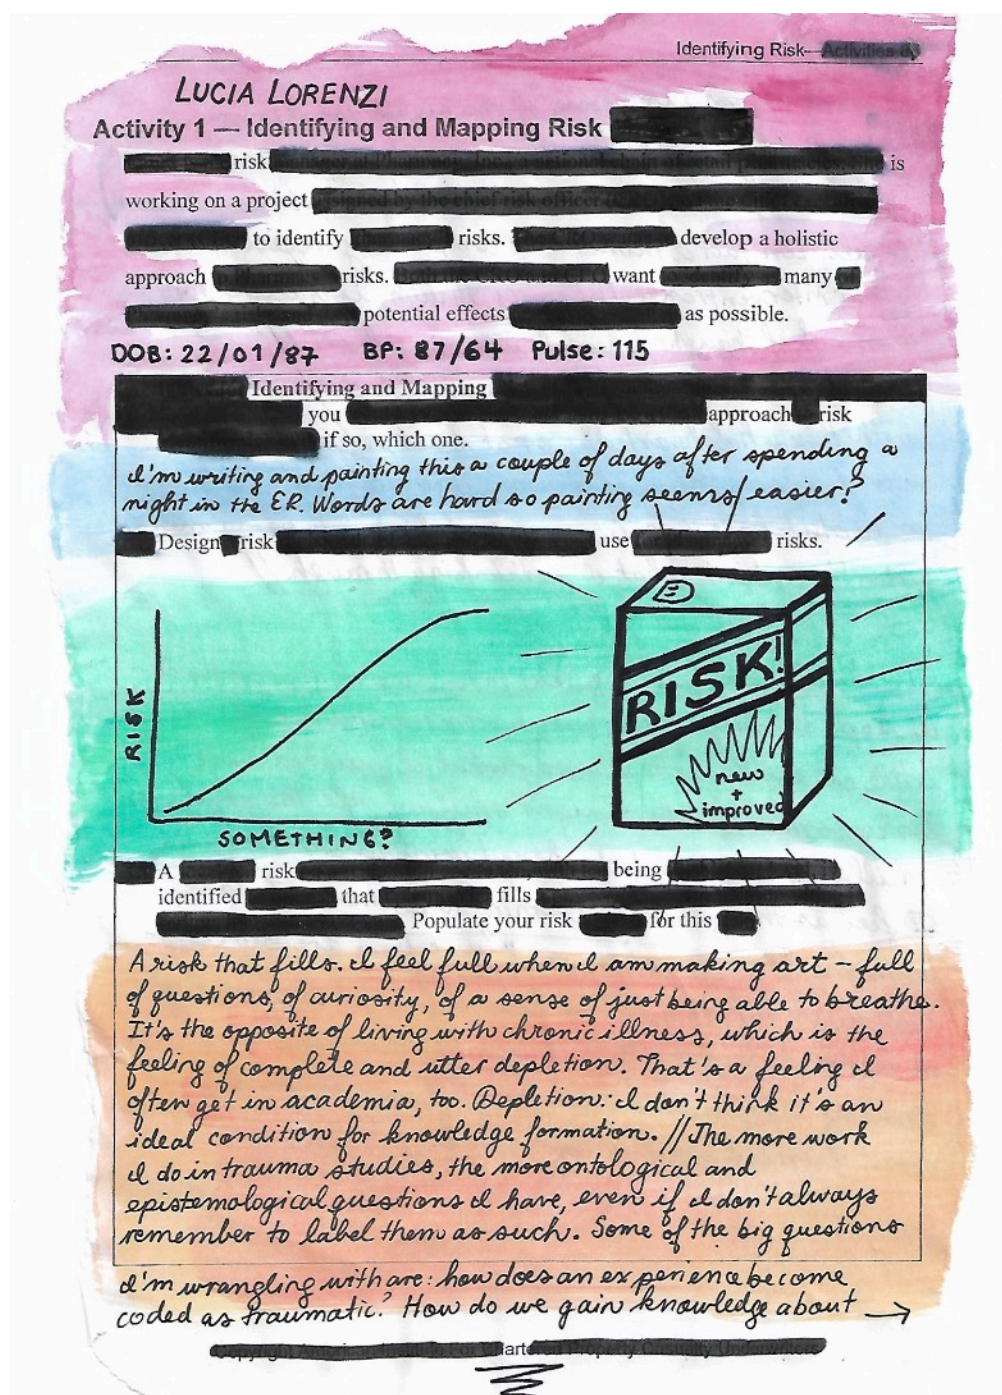 Identifying Risk
LUCIA LORENZI
Activity 1 — Identifying and Mapping Risk
risk is
working on a project
to identify risks. develop a holistic
approach risks. want many
potential effects as possible.
DOB: 22/01/87 BP: 87/64 Pulse: 115
Identifying and Mapping
you approach risk
if so, which one.
I'm writing and painting this a couple of days after spending a
night in the ER. Words are hard so painting seems/easier?
Design risk use risks.
RISK
SOMETHING?
RISK!
new
+
improved
A risk being
identified that fills
Populate your risk for this
A risk that fills. I feel full when I am making art – full
of questions, of curiosity, of a sense of just being able to breathe.
It's the opposite of living with chronic illness, which is the
feeling of complete and utter depletion. That's a feeling I
often get in academia, too. Depletion: I don't think it's an
ideal condition for knowledge formation. // The more work
I do in trauma studies, the more ontological and
epistemological questions I have, even if I don't always
remember to label them as such. Some of the big questions
I'm wrangling with are: how does an experience become
coded as traumatic? How do we gain knowledge about →